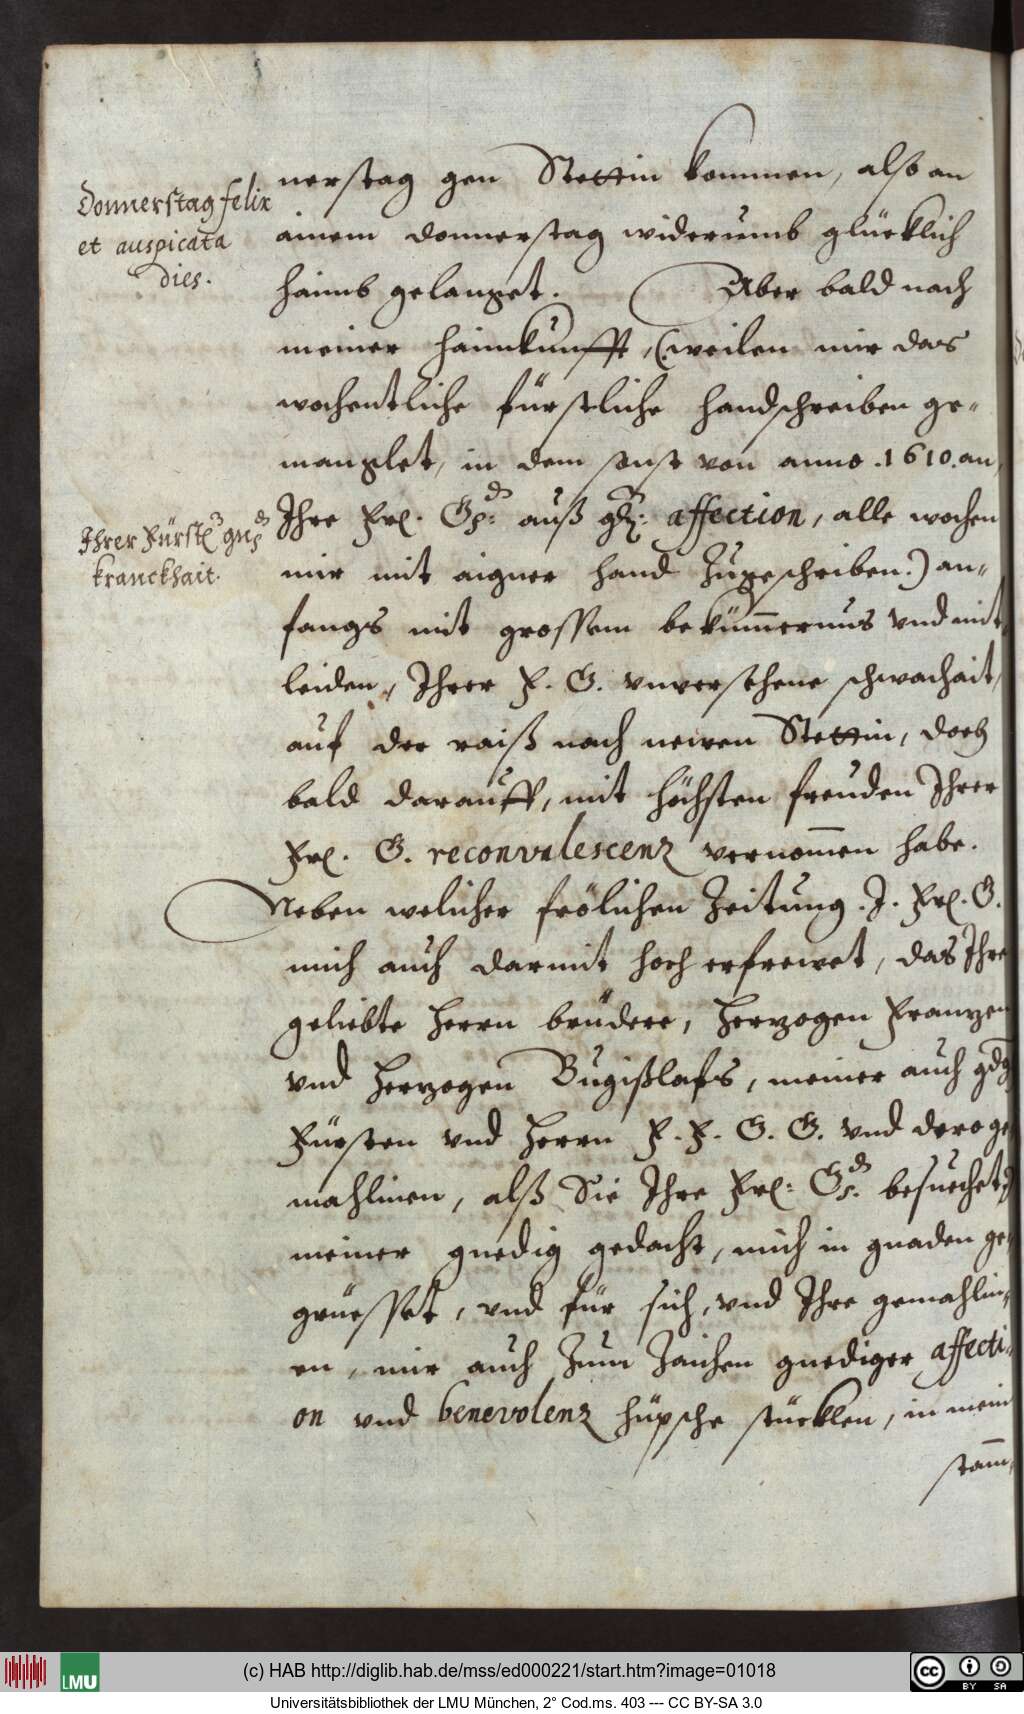 Donnerstag felix
et auspicata
dies.
nerstag gen Stettin kommen, also an
ainem donnerstag widerumb glücklich
haimb gelanget. Aber bald nach
meiner haimkunfft, (weilen mir das
wochentliche fürstliche handschreiben ge-
manglet, in dem sonst von anno .1610. an,
Ihrer Fürstl: gn:
kranckhait.
Ihre Frl. Gn: auß gn: affection, alle wochen
mir mit aigner hand zugeschriben.) an-
fangs mit grossem bekümernus vnd mit-
leiden, Ihrer F. G. vnversehene schwachait,
auf der raiß nach newen Stettin, doch
bald darauff, mit höchsten freuden Ihrer
Frl. G. reconvalescenz vernom̄en habe.
Neben welicher frölichen Zeitung .I. Frl. G.
mich auch darmit hoch erfrewet, das Ihre
geliebte herrn brüdere, herzogen Franzen
vnd herzogen Bugißlafs, meiner auch gdg
Fürsten vnd herrn F. F. G. G. vnd dero ge
mahlinen, alß Sie Ihre Frl: Gn. besuechet,
meiner gnedig gedacht, mich in gnaden ge-
grüesset, vnd für sich, vnd Ihre gemahlin-
en, mir auch zum zaichen gnediger affecti-
on vnd benevolenz hüpsche stücklen, in mein
stam̄-
(c) HAB http://diglib.hab.de/mss/ed000221/start.htm?image=01018
LMU
cc BY SA
Universitätsbibliothek der LMU München, 2° Cod.ms. 403 --- CC BY-SA 3.0